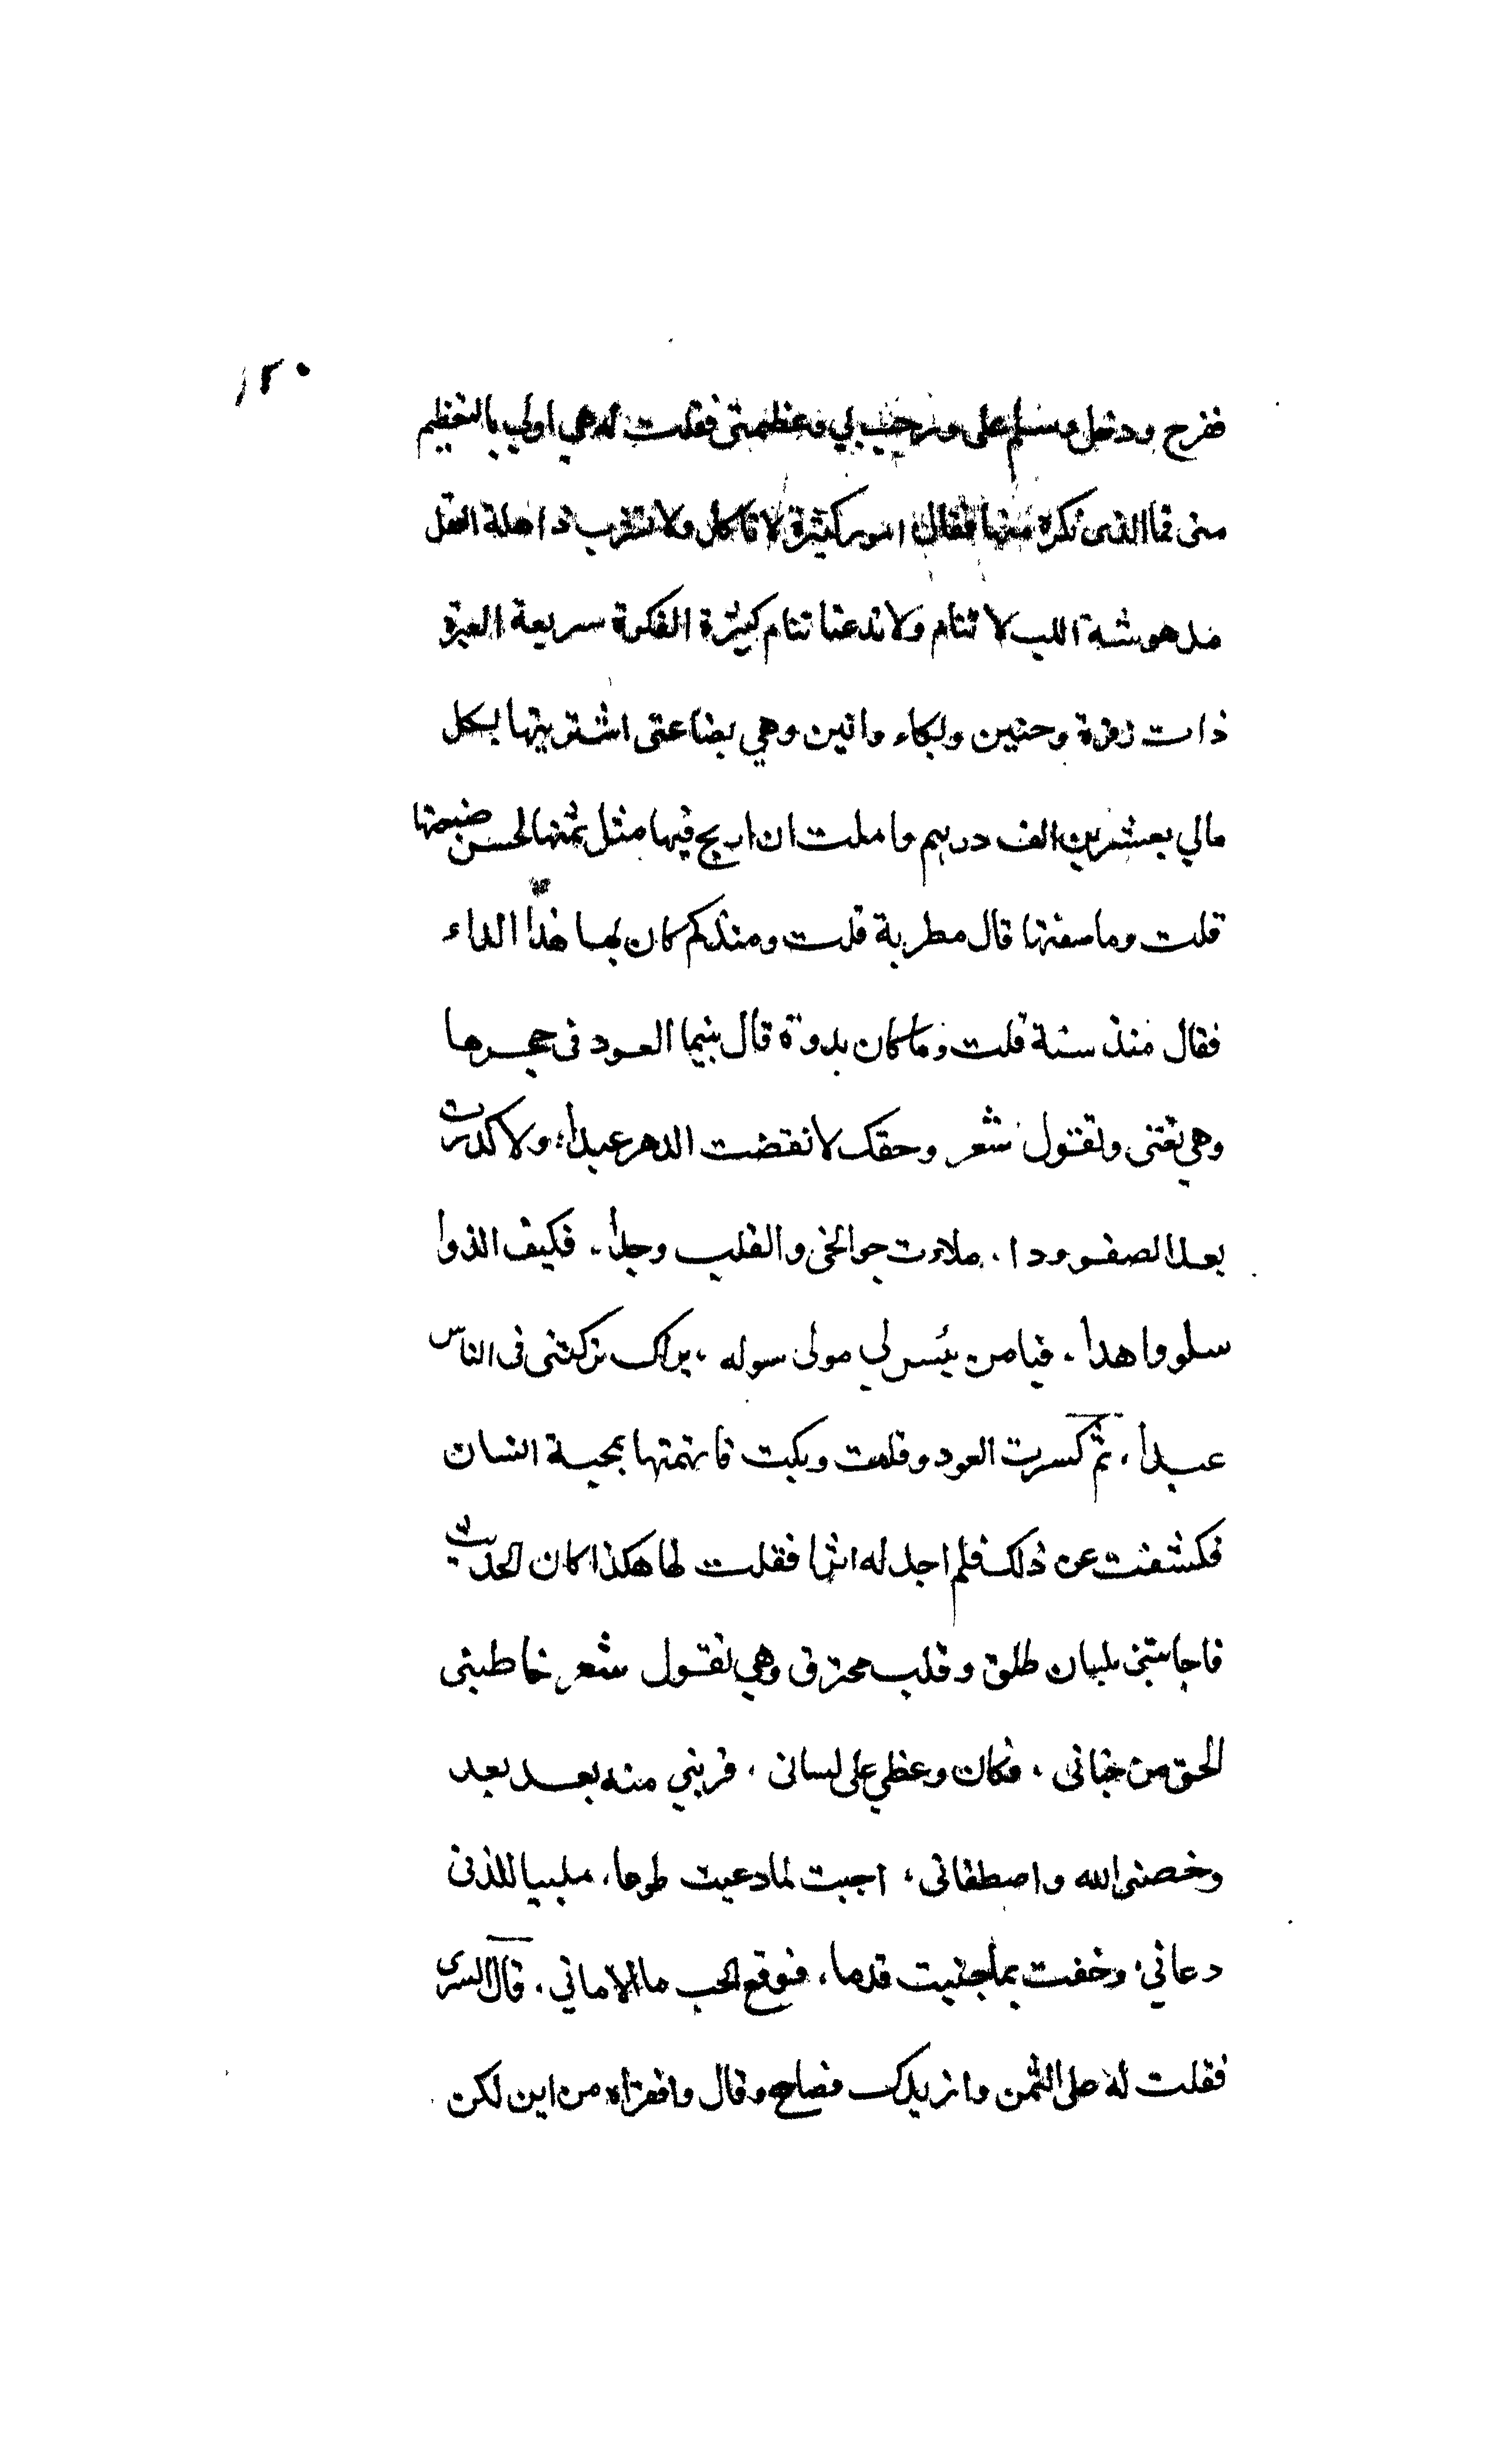 ١٢٠
ففرح ودخل وسلم على ورحب بي وعظمنى فقلت له هي اولي بالتعظيم
منى فما الذى تكره منها فقال امور كثيرة لا تاكل ولا تشرب ذاهلة العقل
مدهوشة اللب لا تنام ولا تدعنا ننام كثيرة الفكرة سريعة العبرة
ذات زفرة وحنين وبكاء وانين وهي بضاعتى اشتريتها بكل
مالي بعشرين الف درهم واملت ان اربح فيها مثل ثمنها لحسن صنعتها
قلت وما صفتها قال مطربة قلت ومنذ كم كان بها هذا الداء
فقال منذ سنة قلت وما كان بدوه قال بينما العود فى حجرها
وهي تغنى وتقول شعر وحقك لا نقضت الدهر عهدا، ولا كدرت
بعد الصفو ودا، ملاءت جوانحى والقلب وجدا، فكيف الذ وا
سلو واهدا، فيا من ليس لي مولى سوله، يراك تركتنى فى الناس
عبدا، ثم كسرت العود وقامت وبكت فاتهمتها بمحبة انسان
فكشفت عن ذلك فلم اجد له اثرا فقلت لها هكذا كان الحديث
فاجابتنى بلسان طلق وقلب محترق وهي تقول شعر خاطبنى
الحق من جنانى، فكان وعظي على لسانى، قربني منه بعد بعد
وخصنى الله واصطفانى، اجبت لما دعيت طوعا، ملبيا للذى
دعاني، وخفت بما جنيت قدما، فوقع الحب ما الامانى، قال السرى
فقلت له على الثمن وازيدك فصاح وقال وافقراه من اين لك ثمن